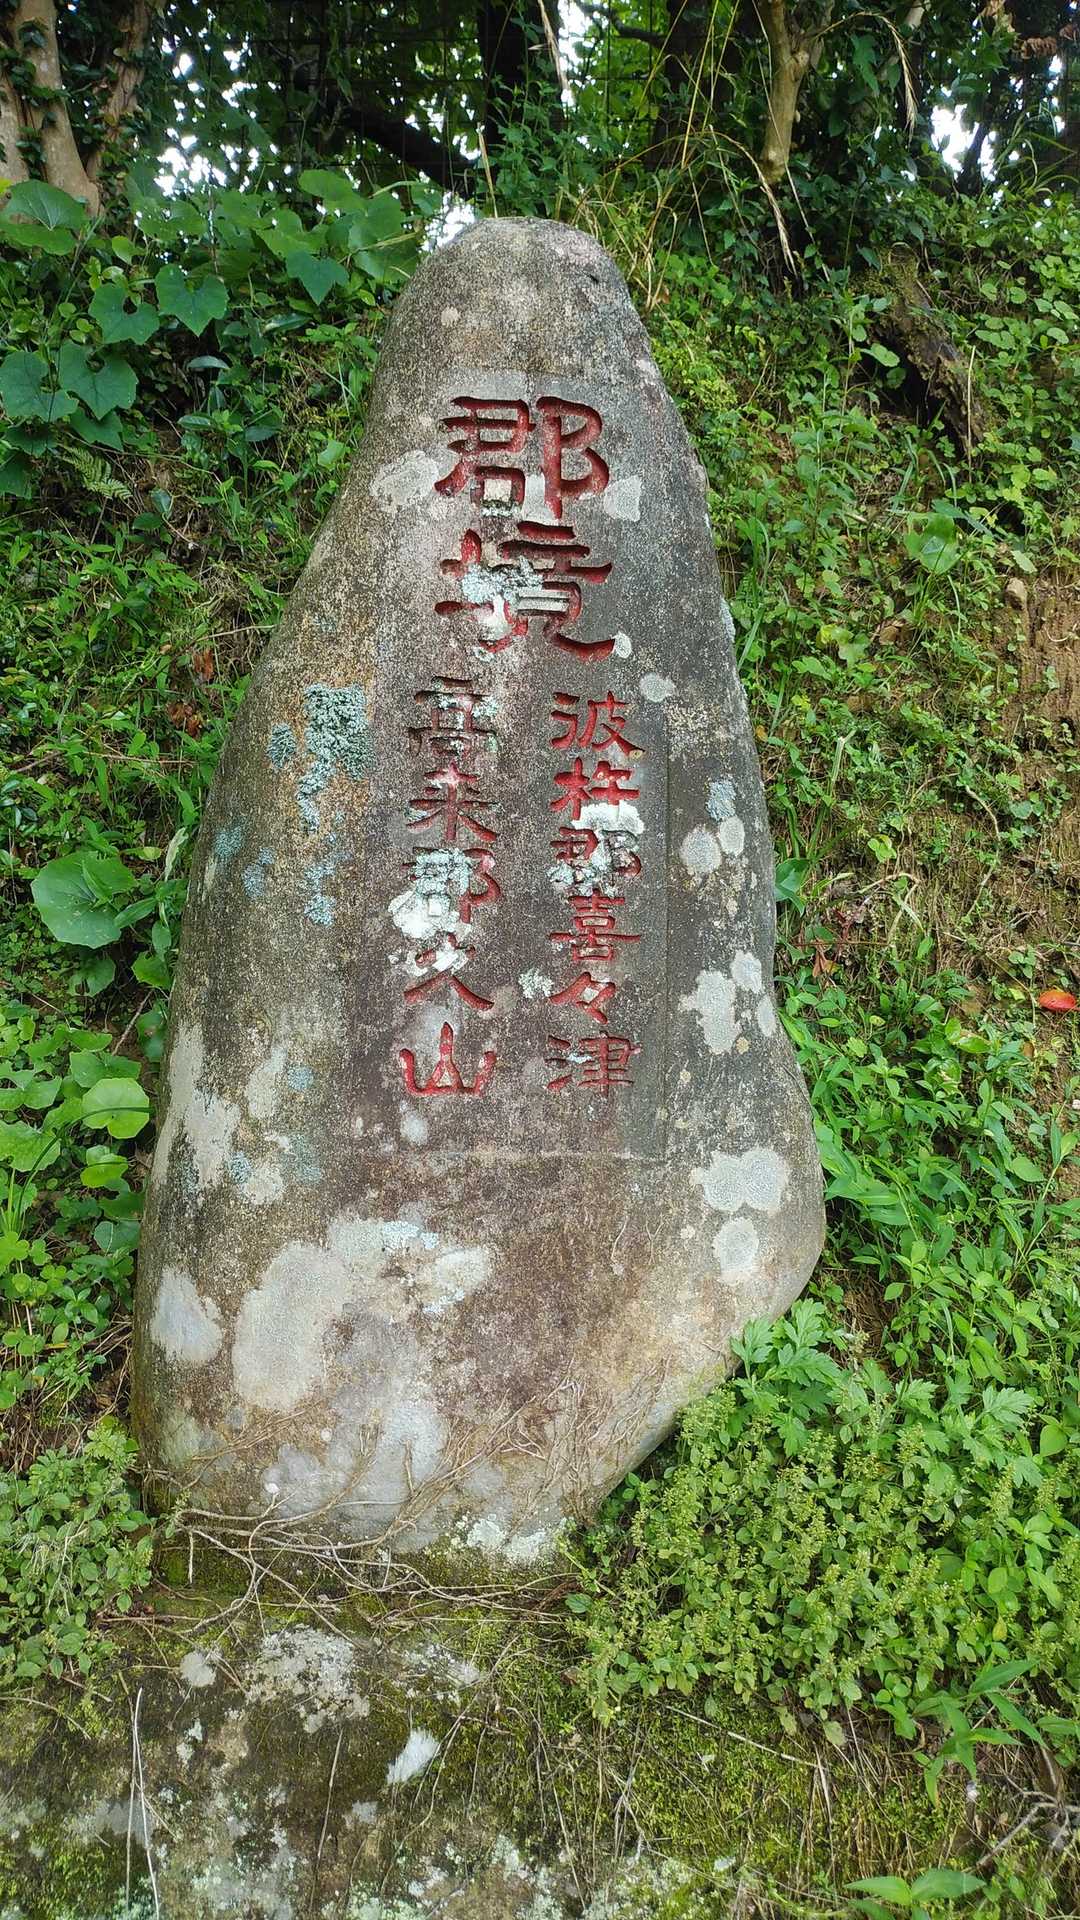 郡境
波杵郡喜々津
高来郡久山